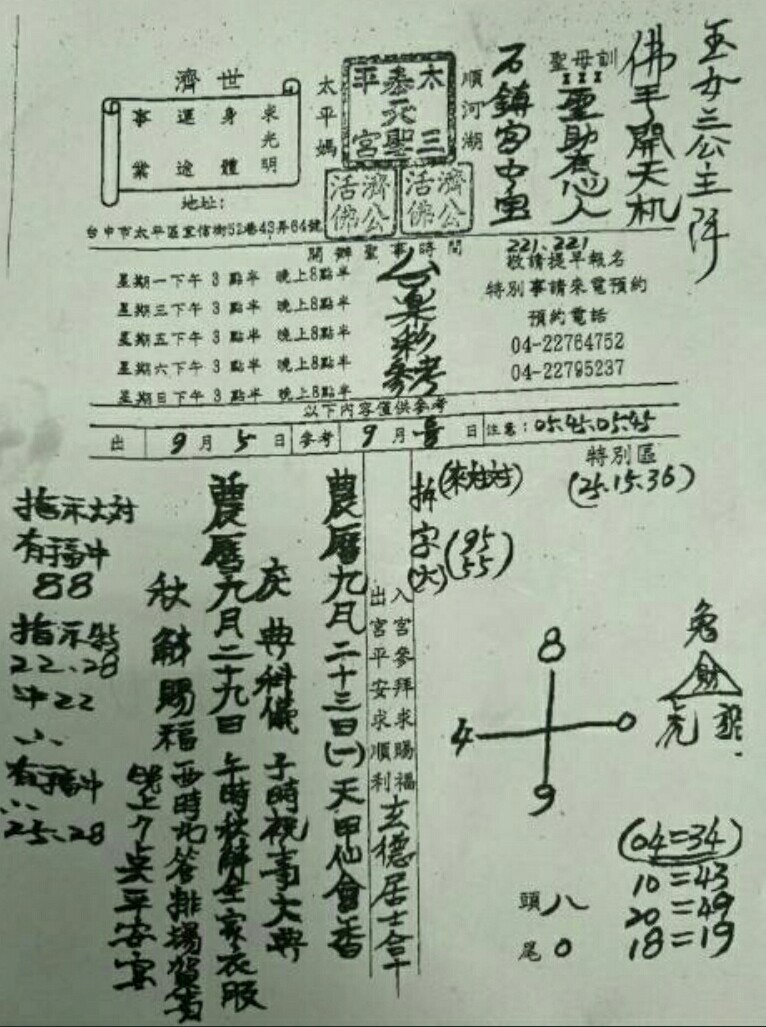 玉女三公主降
佛手開天机
聖母訓
聖助有心人
石鎮宮中宝
順河湖
太三
泰元聖
平宮
太平媽
濟公活佛
濟公活佛
濟世
求光明
身體
運途
事業
地址:
台中市太平區宜信街52巷43弄64號
開辦聖事時間
星期一下午 3 點半 晚上8點半
星期三下午 3 點半 晚上8點半
星期五下午 3 點半 晚上8點半
星期六下午 3 點半 晚上8點半
星期日下午 3 點半 晚上8點半
公益彩參考
221、221
敬請提早報名
特別事請來電預約
預約電話
04-22764752
04-22795237
以下內容僅供參考
出 9 月 5 日 參考 9 月 日 注意: 05.45.05.45
特別區
(25.15.36)
拆字(六)
(95
55)
兔
財
虎
8
4 0
9
(04=34)
10=43
20=49
18=19
頭 八
尾 0
入宮參拜求賜福
出宮平安求順利
玄德居士合十
農曆九月二十三日(一)天甲仙會香
慶典科儀 子時祝壽大典
農曆九月二十九日 午時秋解全家衣服
秋解賜福
晚上7点平安宴
指示大対
有福中
88
指示特
22、28
中22
有福中
25、28